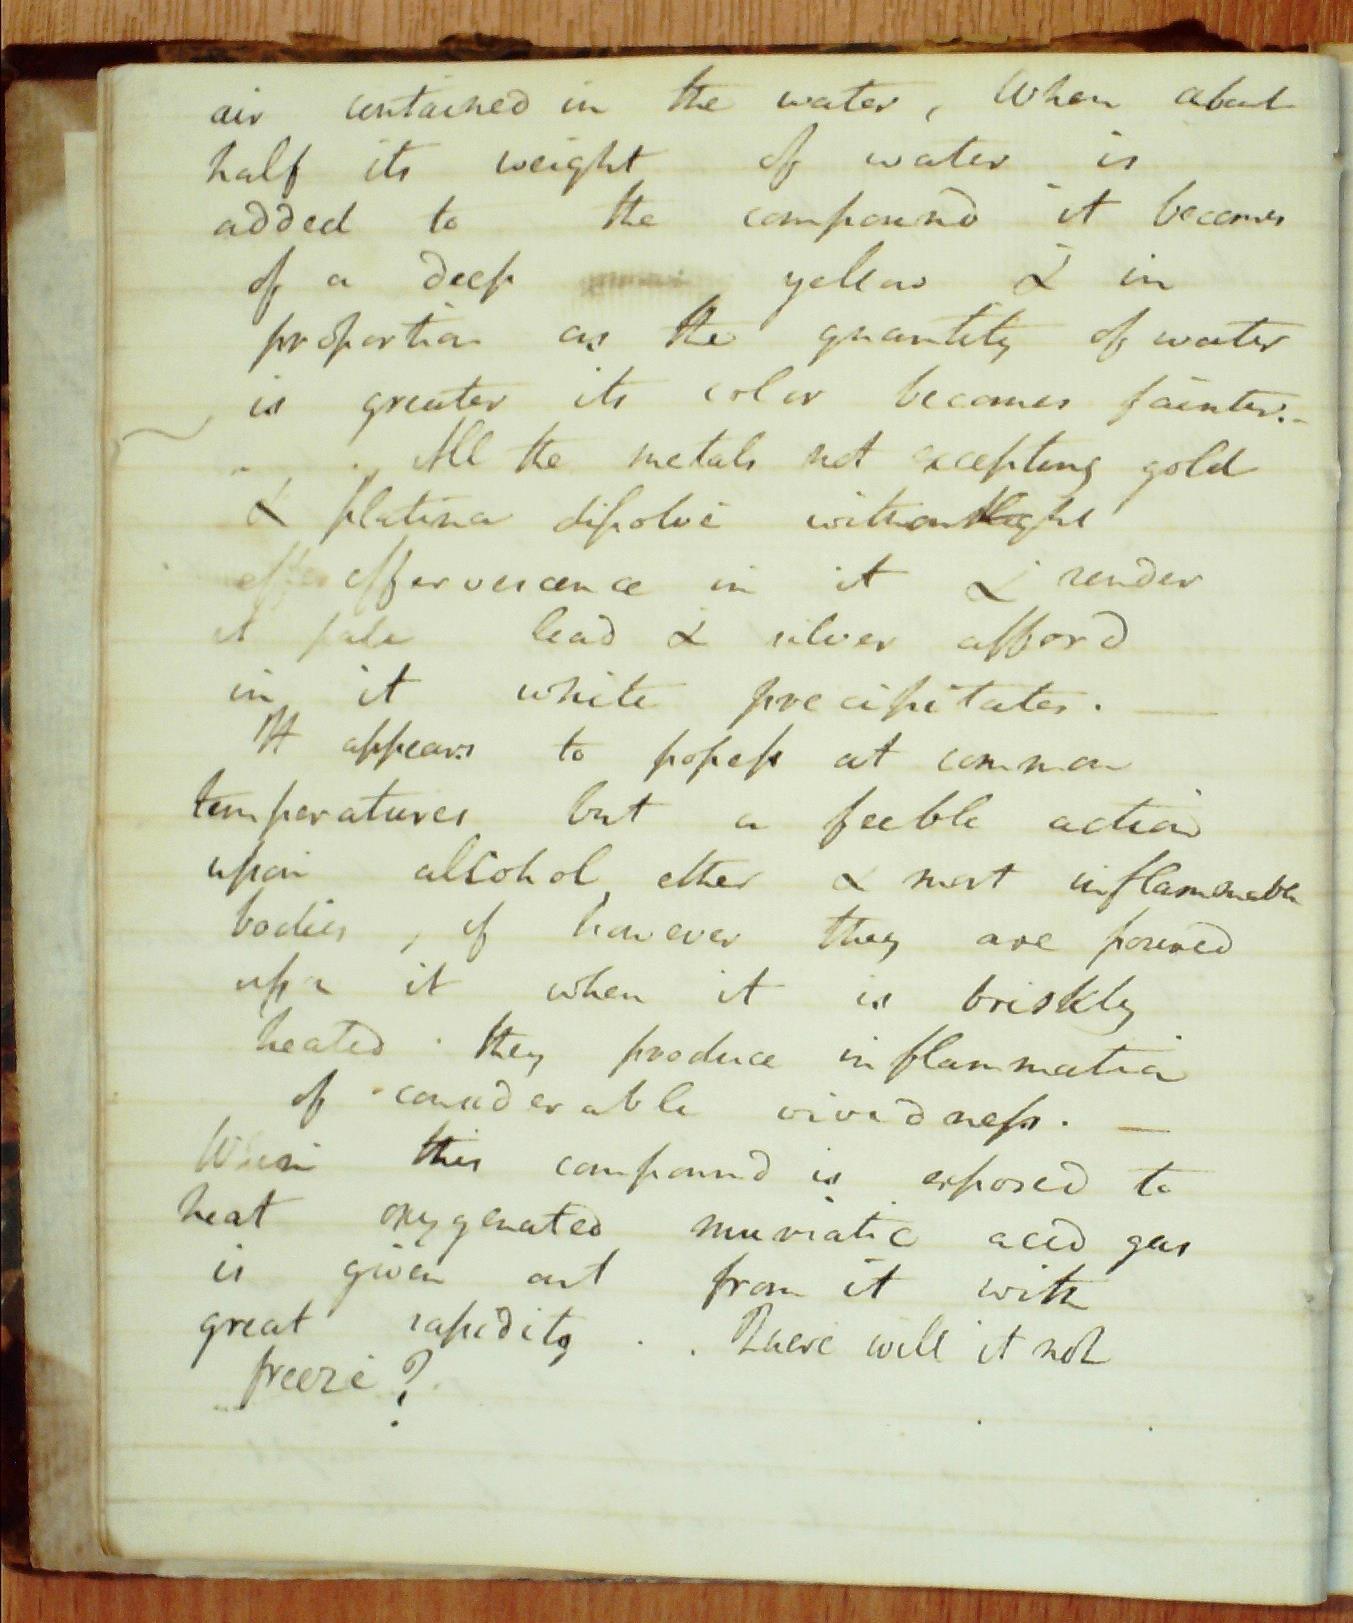 air contained in the water, When about
half its weight of water is
added to the compound it becomes
of a deep yellow & in
proportion as the quantity of water
is greater its color becomes fainter.-
All the metals not excepting gold
& platina dissolve without
effervescence in it & render
it pale lead & silver afford
in it white precipitates. —
It appears to possess at common
temperatures but a feeble action
upon alcohol, ether & most inflammable
bodies, if however they are poured
upon it when it is briskly
heated they produce inflammation
of considerable vividness. —
When this compound is exposed to
heat oxygenated muriatic acid gas
is given out from it with
great rapidity. . Quere will it not
freeze?